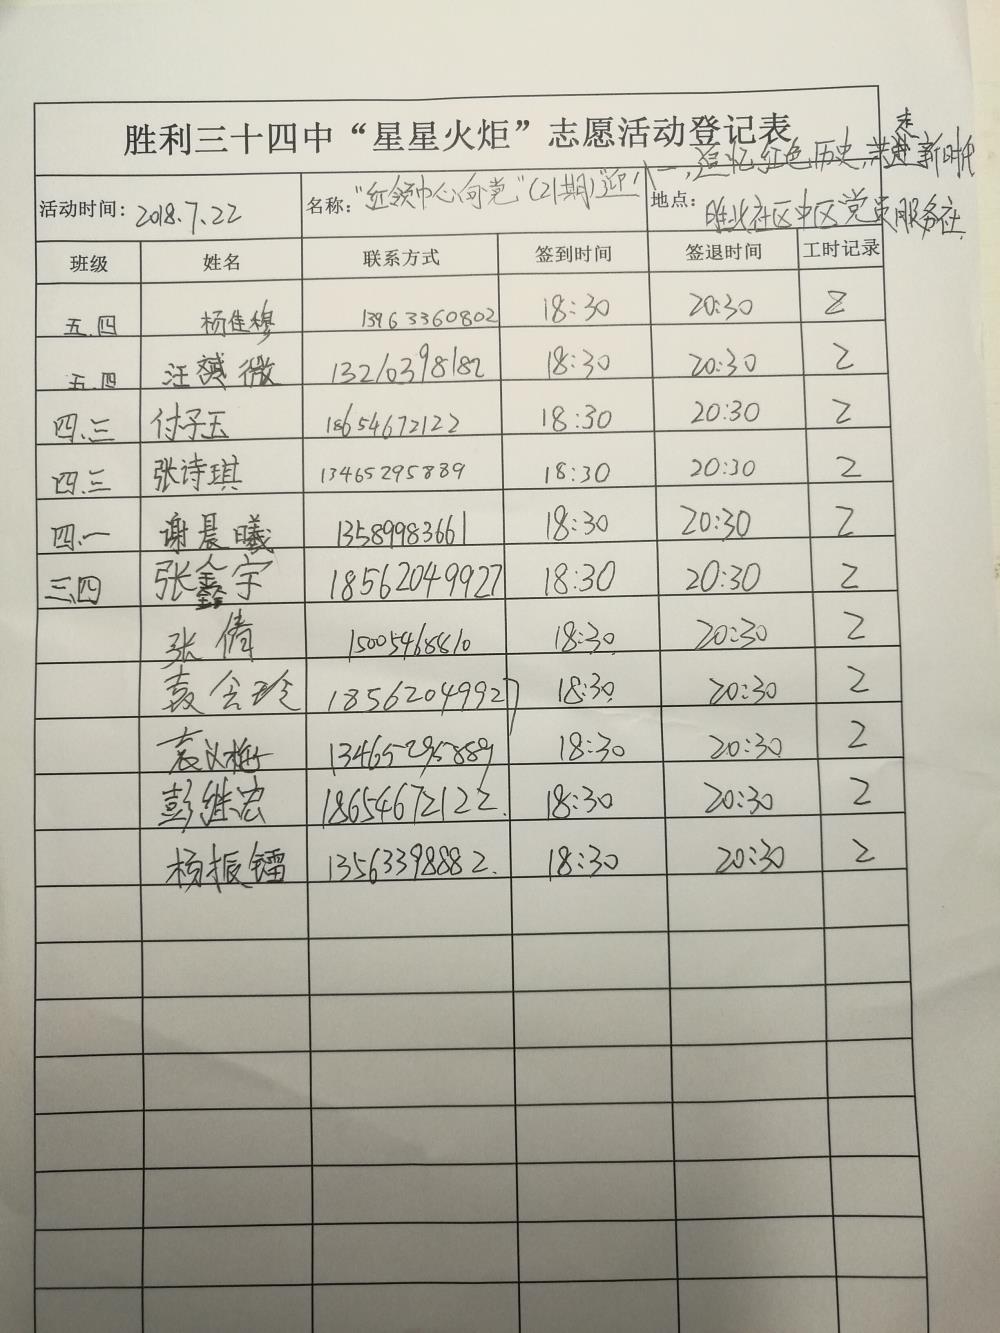 胜利三十四中“星星火炬”志愿活动登记表
活动时间: 2018.7.22 名称: “红领巾心向党”(21期)迎八一,追忆红色历史,走进新时代 地点: 社区中区党员服务社
班级 姓名 联系方式 签到时间 签退时间 工时记录
五.四 杨佳穆 13963360802 18:30 20:30 2
五.四 汪 微 13210398182 18:30 20:30 2
四.三 付子玉 18654672122 18:30 20:30 2
四.三 张诗琪 13465295889 18:30 20:30 2
四.一 谢晨曦 13589983661 18:30 20:30 2
三.四 张鑫宇 18562049927 18:30 20:30 2
张倩 15005468810 18:30 20:30 2
袁会玲 18562049927 18:30 20:30 2
袁义梅 13465295889 18:30 20:30 2
彭继宏 18654672122. 18:30 20:30 2
杨振镭 13563398882. 18:30 20:30 2